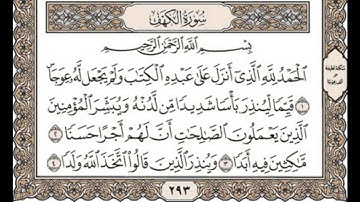 سُورَةُ الكَهْفِ
بِسْمِ اللَّهِ الرَّحْمَٰنِ الرَّحِيمِ
الْحَمْدُ لِلَّهِ الَّذِي أَنزَلَ عَلَىٰ عَبْدِهِ الْكِتَابَ وَلَمْ يَجْعَل لَّهُ عِوَجًا
١ قَيِّمًا لِّيُنذِرَ بَأْسًا شَدِيدًا مِّن لَّدُنْهُ وَيُبَشِّرَ الْمُؤْمِنِينَ
الَّذِينَ يَعْمَلُونَ الصَّالِحَاتِ أَنَّ لَهُمْ أَجْرًا حَسَنًا ٢
مَّاكِثِينَ فِيهِ أَبَدًا ٣ وَيُنذِرَ الَّذِينَ قَالُوا اتَّخَذَ اللَّهُ وَلَدًا ٤
٢٩٣